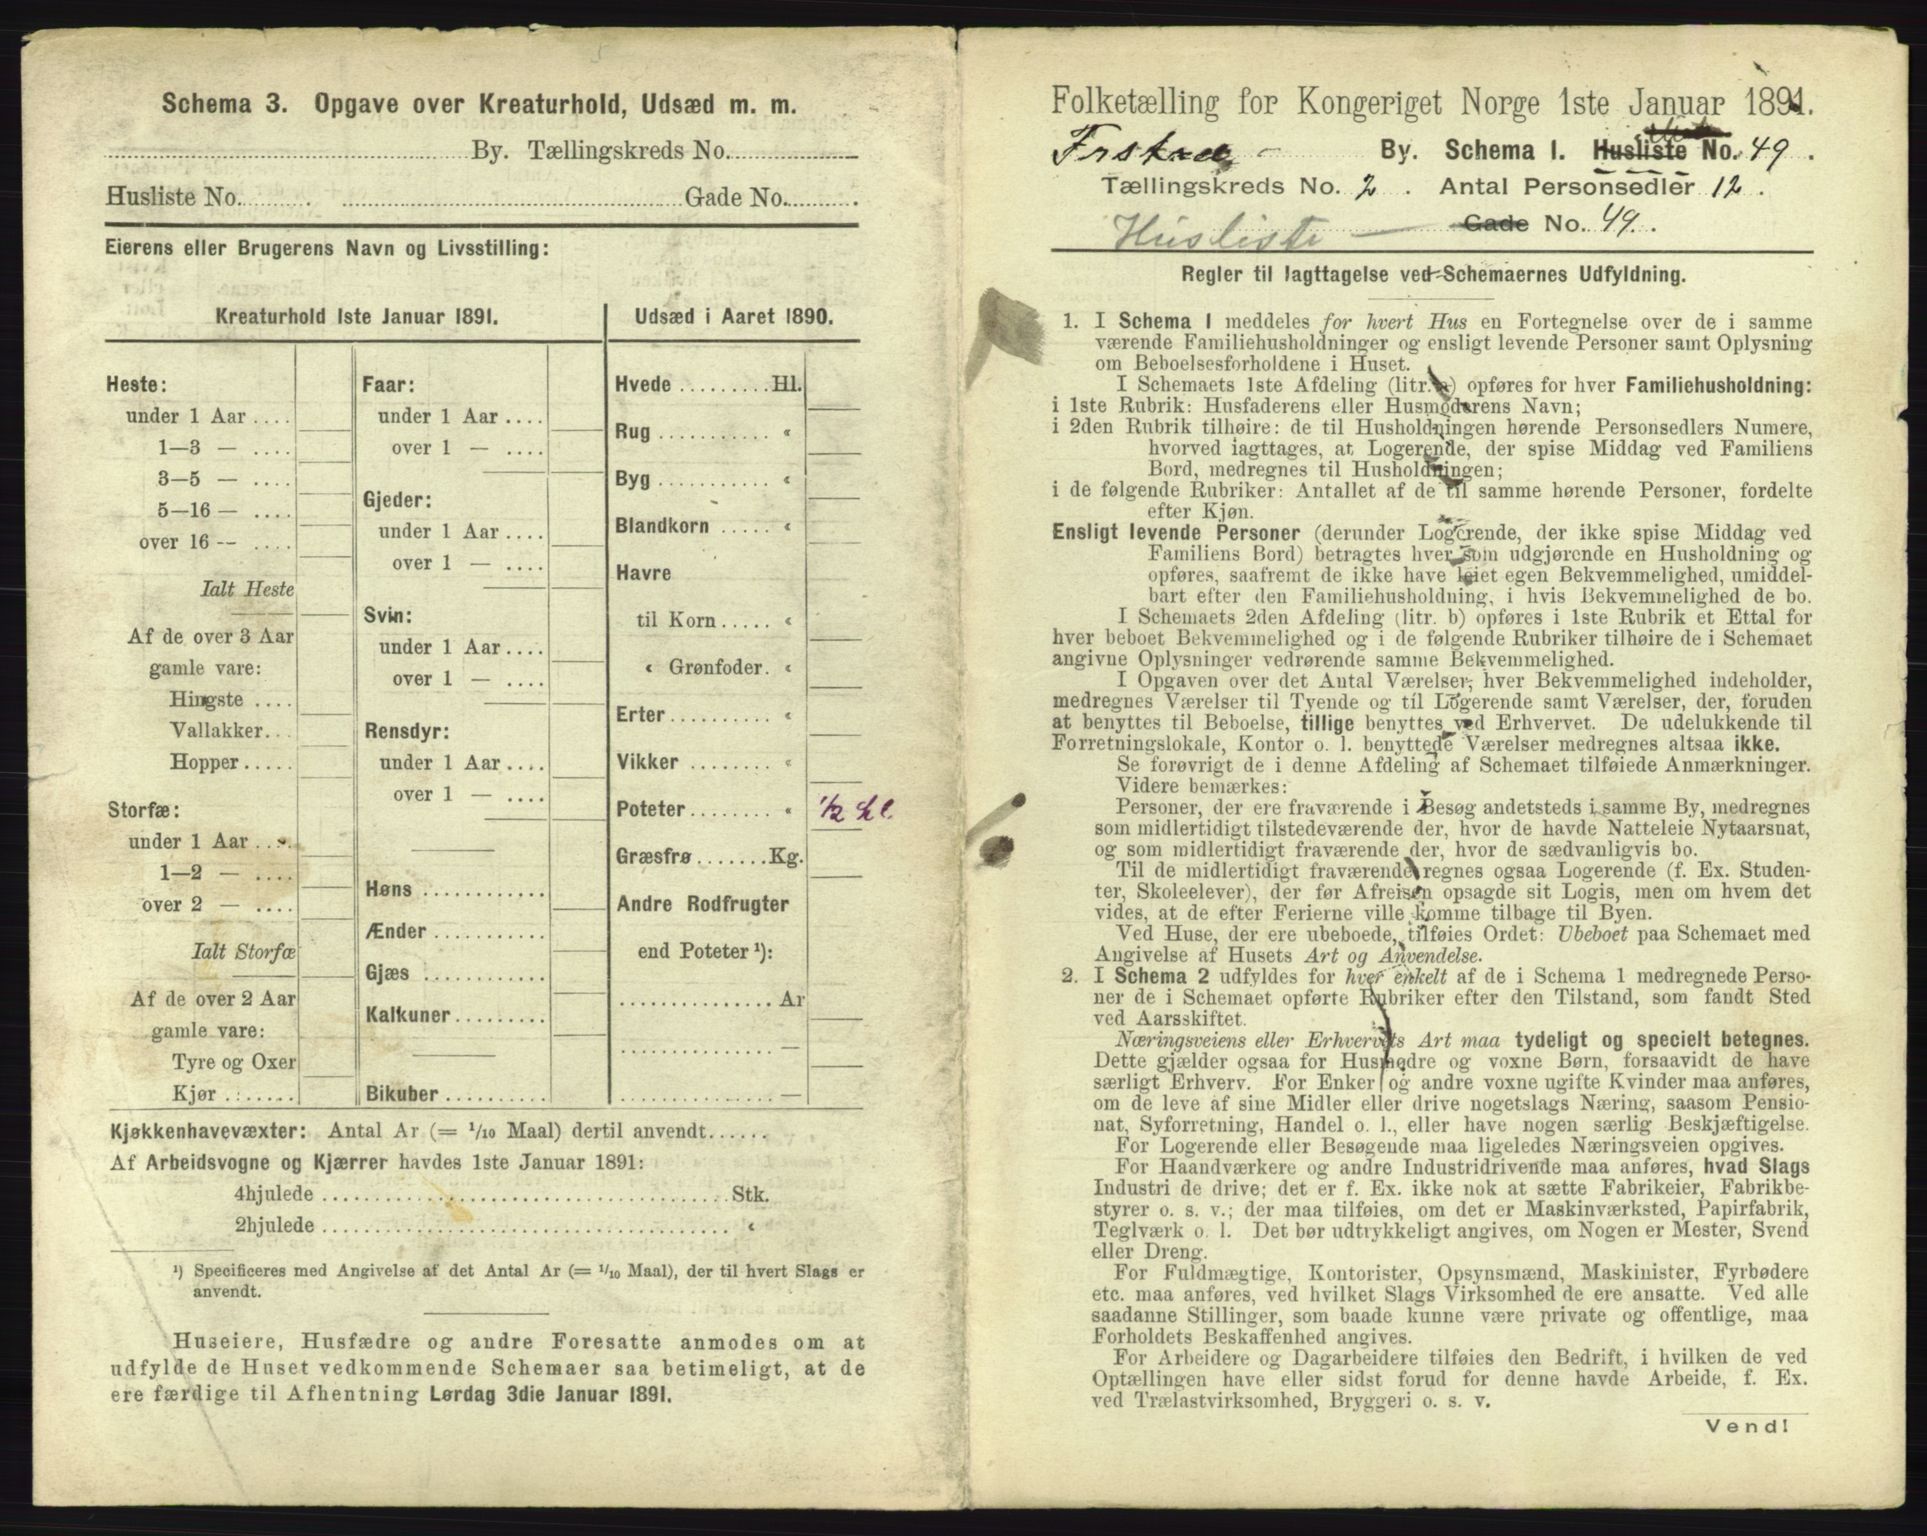 Schema 3. Opgave over Kreaturhold, Udsæd m. m.
By. Tællingskreds No.
Husliste No. Gade No.
Eierens eller Brugerens Navn og Livsstilling:
Kreaturhold 1ste Januar 1891.
Heste:
under 1 Aar ....
1—3 — ....
3—5 — ....
5—16 — ....
over 16 — ....
Ialt Heste
Af de over 3 Aar
gamle vare:
Hingste ....
Vallakker...
Hopper.....
Storfæ:
under 1 Aar ....
1—2 — ....
over 2 — ....
Ialt Storfæ
Af de over 2 Aar
gamle vare:
Tyre og Oxer
Kjør .......
Faar:
under 1 Aar ....
over 1 — ....
Gjeder:
under 1 Aar ....
over 1 — ....
Svin:
under 1 Aar ....
over 1 — ....
Rensdyr:
under 1 Aar ....
over 1 — ....
Høns ............
Ænder ...........
Gjæs ............
Kalkuner.........
Bikuber ..........
Udsæd i Aaret 1890.
Hvede .........Hl.
Rug ........... «
Byg ........... «
Blandkorn ..... «
Havre
til Korn ..... «
« Grønfoder. «
Erter .......... «
Vikker ........ «
Poteter ........ « 1/2 hl.
Græsfrø .......Kg.
Andre Rodfrugter
end Poteter ¹):
...............Ar
...............—
...............—
Kjøkkenhavevæxter: Antal Ar (= 1/10 Maal) dertil anvendt......
Af Arbeidsvogne og Kjærrer havdes 1ste Januar 1891:
4hjulede ........................................ Stk.
2hjulede ........................................ «
¹) Specificeres med Angivelse af det Antal Ar (= 1/10 Maal), der til hvert Slags er
anvendt.
Huseiere, Husfædre og andre Foresatte anmodes om at
udfylde de Huset vedkommende Schemaer saa betimeligt, at de
ere færdige til Afhentning Lørdag 3die Januar 1891.
Folketælling for Kongeriget Norge 1ste Januar 1891.
By. Schema I. Husliste No. 49.
Tællingskreds No. 2. Antal Personsedler 12.
Husliste — Gade No. 49.
Regler til Iagttagelse ved Schemaernes Udfyldning.
1. I Schema 1 meddeles for hvert Hus en Fortegnelse over de i samme
værende Familiehusholdninger og ensligt levende Personer samt Oplysning
om Beboelsesforholdene i Huset.
I Schemaets 1ste Afdeling (litr. a) opføres for hver Familiehusholdning:
i 1ste Rubrik: Husfaderens eller Husmoderens Navn;
i 2den Rubrik tilhøire: de til Husholdningen hørende Personsedlers Numere,
hvorved iagttages, at Logerende, der spise Middag ved Familiens
Bord, medregnes til Husholdningen;
i de følgende Rubriker: Antallet af de til samme hørende Personer, fordelte
efter Kjøn.
Ensligt levende Personer (derunder Logerende, der ikke spise Middag ved
Familiens Bord) betragtes hver som udgjørende en Husholdning og
opføres, saafremt de ikke have leiet egen Bekvemmelighed, umiddel-
bart efter den Familiehusholdning, i hvis Bekvemmelighed de bo.
I Schemaets 2den Afdeling (litr. b) opføres i 1ste Rubrik et Ettal for
hver beboet Bekvemmelighed og i de følgende Rubriker tilhøire de i Schemaet
angivne Oplysninger vedrørende samme Bekvemmelighed.
I Opgaven over det Antal Værelser, hver Bekvemmelighed indeholder,
medregnes Værelser til Tyende og til Logerende samt Værelser, der, foruden
at benyttes til Beboelse, tillige benyttes ved Erhvervet. De udelukkende til
Forretningslokale, Kontor o. l. benyttede Værelser medregnes altsaa ikke.
Se forøvrigt de i denne Afdeling af Schemaet tilføiede Anmærkninger.
Videre bemærkes:
Personer, der ere fraværende i Besøg andetsteds i samme By, medregnes
som midlertidigt tilstedeværende der, hvor de havde Natteleie Nytaarsnat,
og som midlertidigt fraværende der, hvor de sædvanligvis bo.
Til de midlertidigt fraværende regnes ogsaa Logerende (f. Ex. Studen-
ter, Skoleelever), der før Afreisen opsagde sit Logis, men om hvem det
vides, at de efter Ferierne ville komme tilbage til Byen.
Ved Huse, der ere ubeboede, tilføies Ordet: Ubeboet paa Schemaet med
Angivelse af Husets Art og Anvendelse.
2. I Schema 2 udfyldes for hver enkelt af de i Schema 1 medregnede Perso-
ner de i Schemaet opførte Rubriker efter den Tilstand, som fandt Sted
ved Aarsskiftet.
Næringsveiens eller Erhvervets Art maa tydeligt og specielt betegnes.
Dette gjælder ogsaa for Husmødre og voxne Børn, forsaavidt de have
særligt Erhverv. For Enker og andre voxne ugifte Kvinder maa anføres,
om de leve af sine Midler eller drive nogetslags Næring, saasom Pensio-
nat, Syforretning, Handel o. l., eller have nogen særlig Beskjæftigelse.
For Logerende eller Besøgende maa ligeledes Næringsveien opgives.
For Haandværkere og andre Industridrivende maa anføres, hvad Slags
Industri de drive; det er f. Ex. ikke nok at sætte Fabrikeier, Fabrikbe-
styrer o. s. v.; der maa tilføies, om det er Maskinværksted, Papirfabrik,
Teglværk o. l. Det bør udtrykkeligt angives, om Nogen er Mester, Svend
eller Dreng.
For Fuldmægtige, Kontorister, Opsynsmænd, Maskinister, Fyrbødere
etc. maa anføres, ved hvilket Slags Virksomhed de ere ansatte. Ved alle
saadanne Stillinger, som baade kunne være private og offentlige, maa
Forholdets Beskaffenhed angives.
For Arbeidere og Dagarbeidere tilføies den Bedrift, i hvilken de ved
Optællingen have eller sidst forud for denne havde Arbeide, f. Ex.
ved Trælastvirksomhed, Bryggeri o. s. v.
Vend!